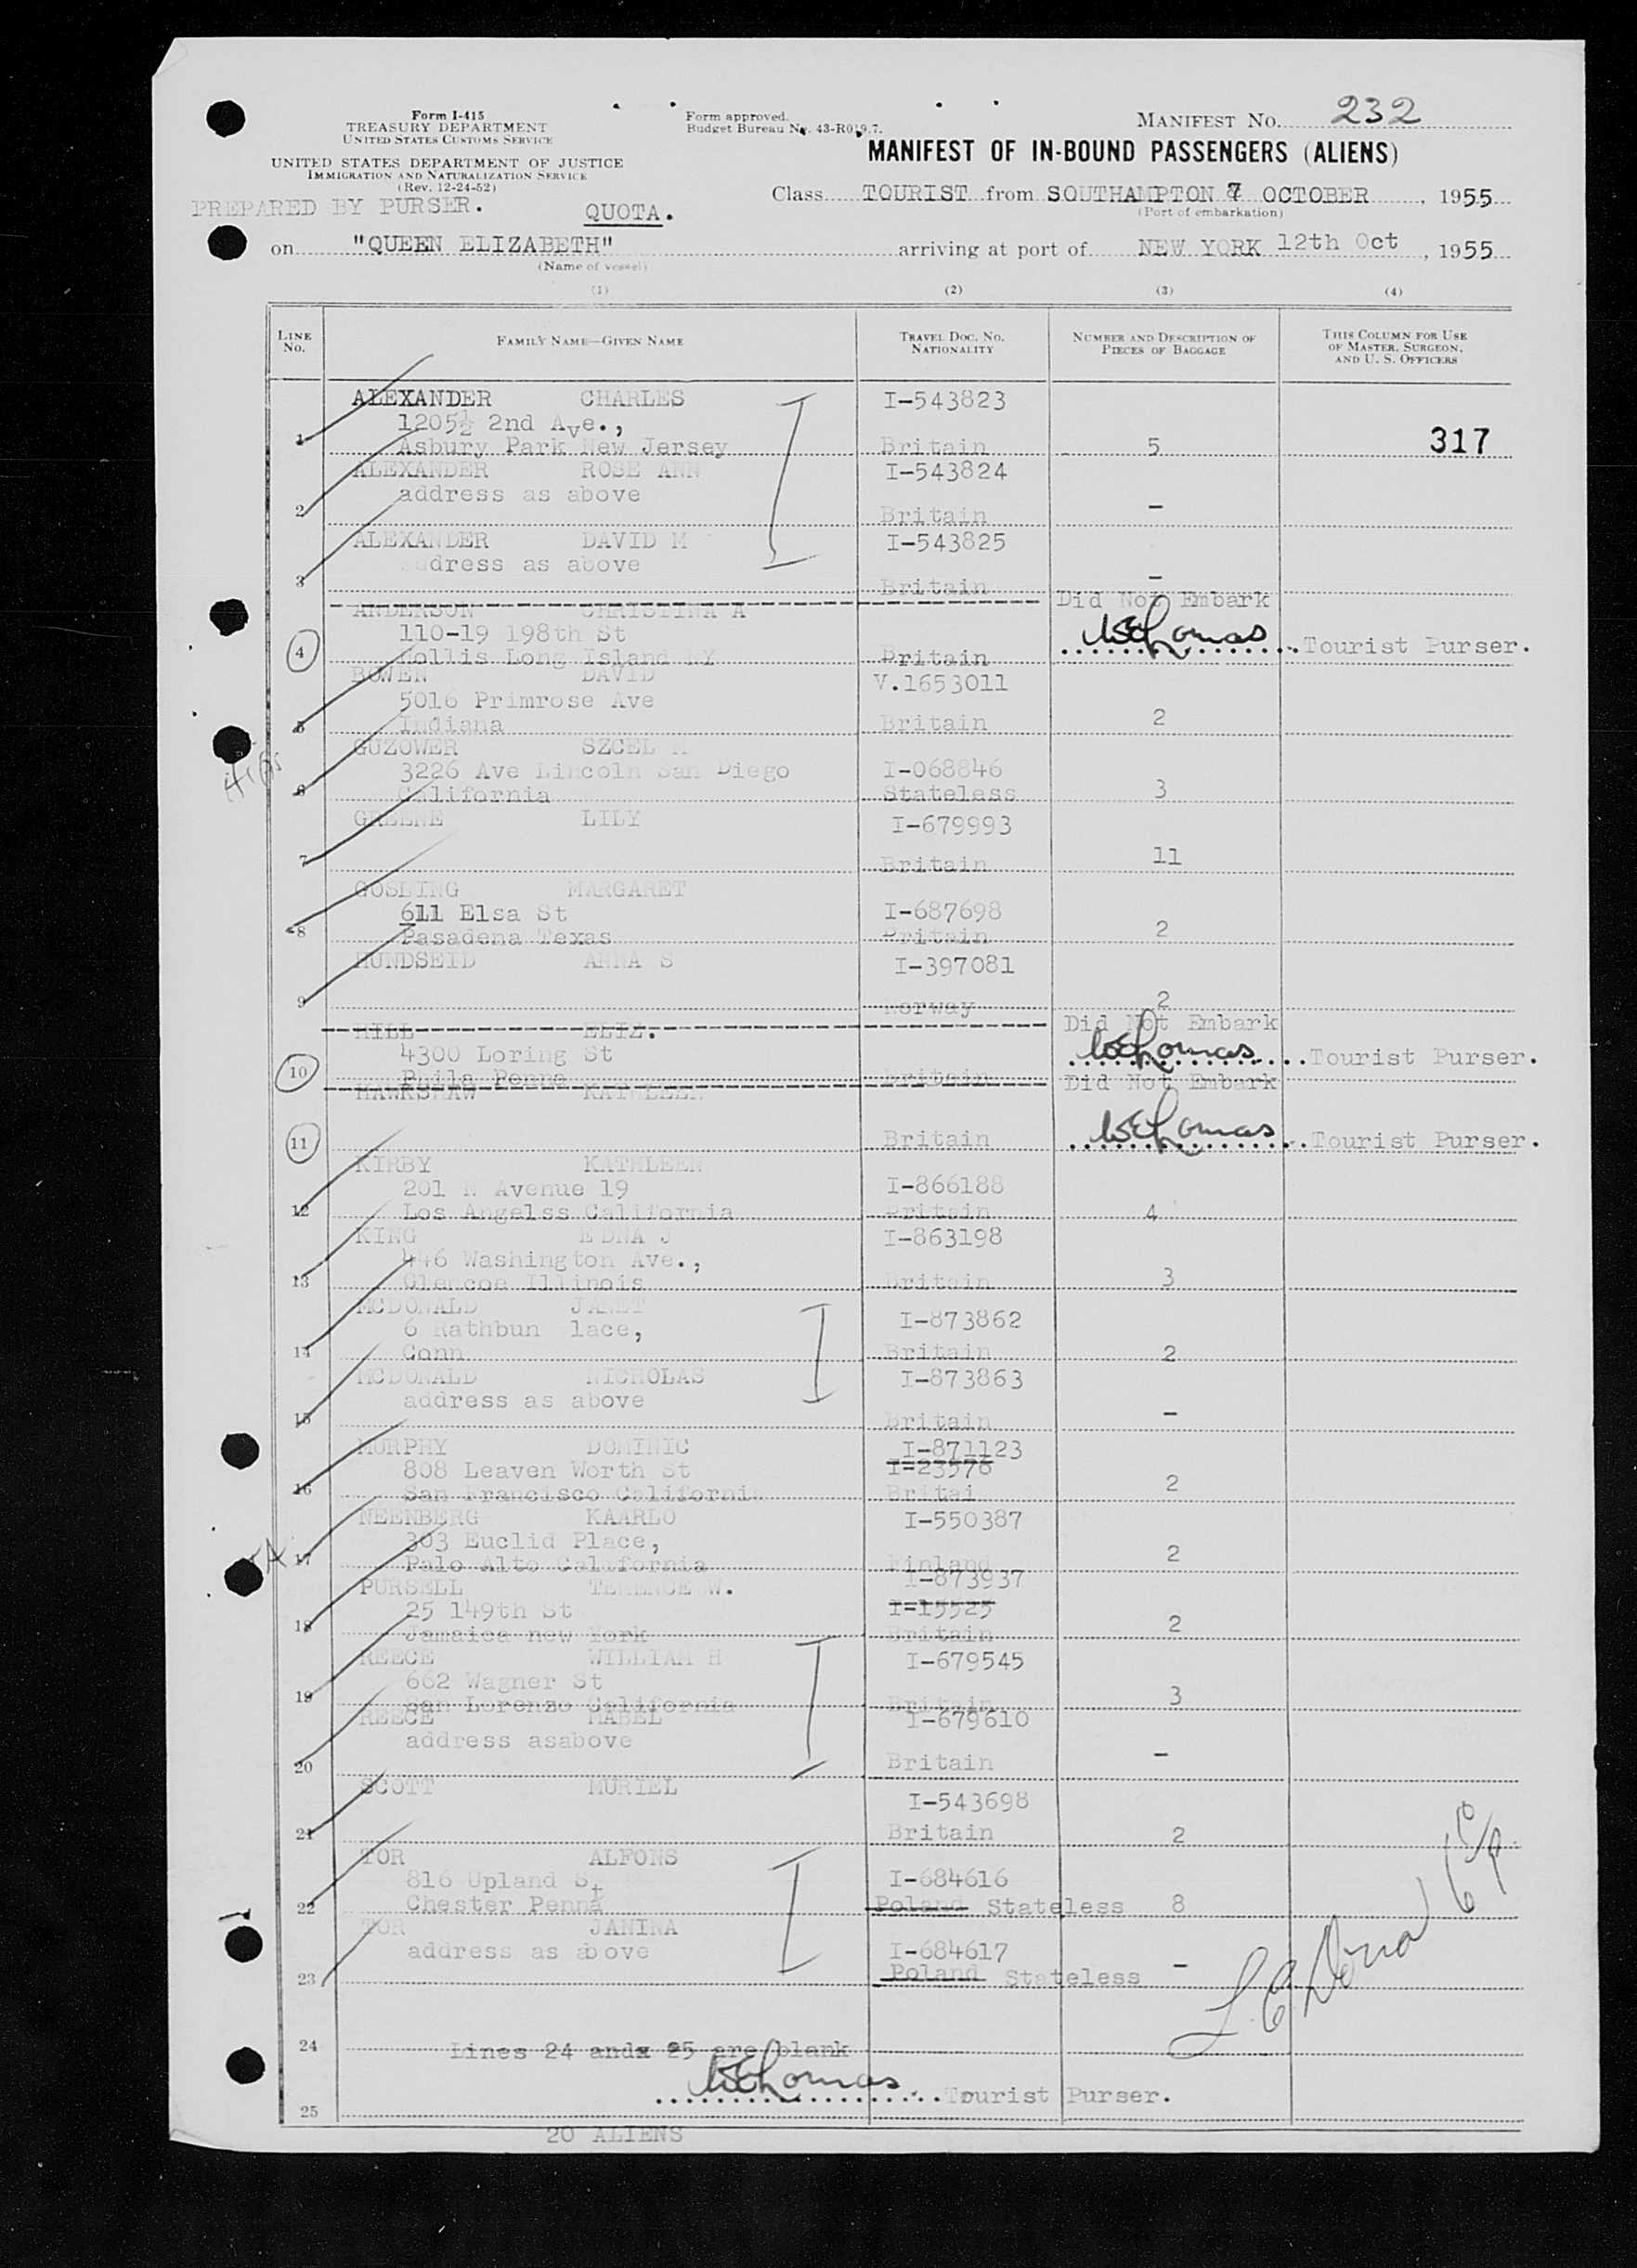 Form I-415
TREASURY DEPARTMENT
UNITED STATES CUSTOMS SERVICE
UNITED STATES DEPARTMENT OF JUSTICE
IMMIGRATION AND NATURALIZATION SERVICE
(Rev. 12-24-52)
Form approved.
Budget Bureau No. 43-R019.7.
MANIFEST NO. 232
MANIFEST OF IN-BOUND PASSENGERS (ALIENS)
PREPARED BY PURSER. QUOTA.
Class TOURIST from SOUTHAMPTON 7 OCTOBER, 1955
(Port of embarkation)
on "QUEEN ELIZABETH" arriving at port of NEW YORK 12th Oct, 1955
(Name of vessel)
(1) (2) (3) (4)
LINE NO. FAMILY NAME—GIVEN NAME TRAVEL DOC. NO. NATIONALITY NUMBER AND DESCRIPTION OF PIECES OF BAGGAGE THIS COLUMN FOR USE OF MASTER, SURGEON, AND U. S. OFFICERS
ALEXANDER CHARLES I-543823
1205½ 2nd Ave.,
1 Asbury Park New Jersey Britain 5 317
ALEXANDER ROSE ANN I-543824
address as above
2 Britain –
ALEXANDER DAVID M I-543825
address as above
3 Britain –
ANDERSON CHRISTINA A Did Not Embark
110-19 198th St
4 Hollis Long Island NY Britain WEThomas Tourist Purser.
BOWEN DAVID V.1653011
5016 Primrose Ave
5 Indiana Britain 2
GUZOWER SZCEL
3226 Ave Lincoln San Diego I-068846
6 California Stateless 3
GREENE LILY I-679993
7 Britain 11
GOSLING MARGARET
611 Elsa St I-687698
8 Pasadena Texas Britain 2
HUNDSEID ANNA S I-397081
9 Norway 2
HILL ELIZ. Did Not Embark
4300 Loring St WEThomas Tourist Purser.
10 Phila Penna Britain
HAWKSHAW KATHLEEN Did Not Embark
11 Britain WEThomas Tourist Purser.
KIRBY KATHLEEN
201 N Avenue 19 I-866188
12 Los Angelss California Britain 4
KING EDNA J I-863198
446 Washington Ave.,
13 Glencoe Illinois Britain 3
MCDONALD JANET I-873862
6 Rathbun lace,
14 Conn Britain 2
MCDONALD NICHOLAS I-873863
address as above
15 Britain –
MURPHY DOMINIC I-871123
808 Leaven Worth St I-23576
16 San Francisco California Britai 2
NEENBERG KAARLO I-550387
303 Euclid Place,
17 Palo Alto California Finland 2
PURSELL TERENCE W. I-873937
25 149th St I-15525
18 Jamaica new York Britain 2
REECE WILLIAM H I-679545
662 Wagner St
19 San Lorenzo California Britain 3
REECE MABEL I-679610
address asabove
20 Britain –
SCOTT MURIEL I-543698
21 Britain 2
TOR ALFONS
816 Upland St I-684616
22 Chester Penna Poland Stateless 8
TOR JANINA
address as above I-684617
23 Poland Stateless –
24 Lines 24 and 25 are blank
WEThomas Tourist Purser.
25
20 ALIENS